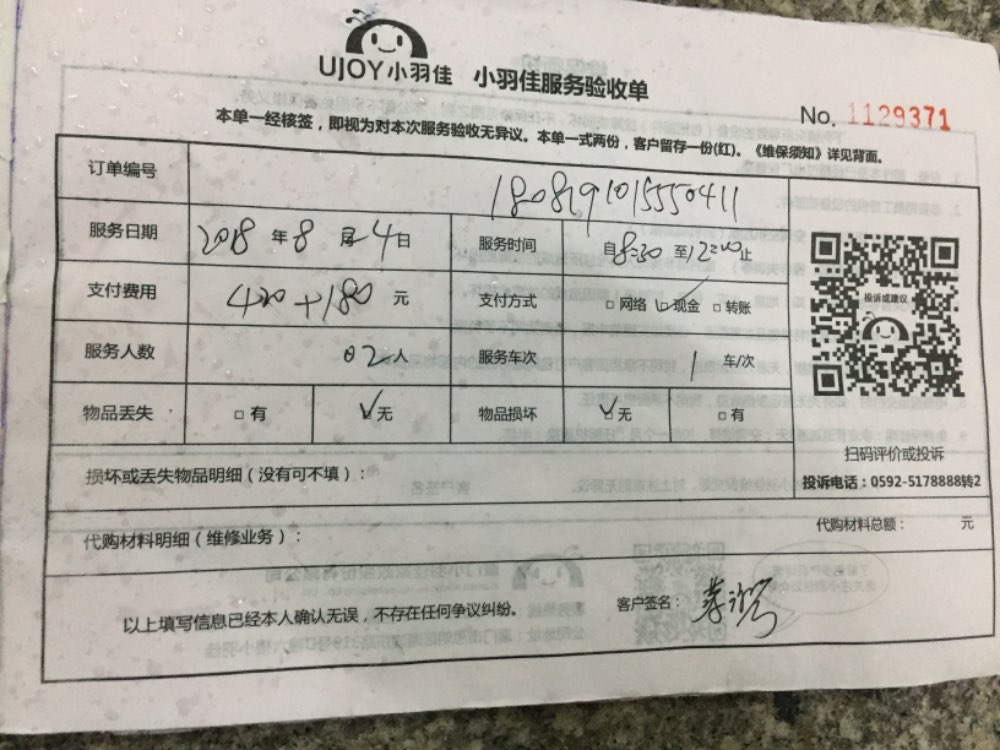 UJOY小羽佳 小羽佳服务验收单
No. 1129371
本单一经核签，即视为对本次服务验收无异议。本单一式两份，客户留存一份(红)。《维保须知》详见背面。
订单编号
服务日期 2018 年 8 月 4 日 服务时间 自 8:30 至 12:00 止
支付费用 420+180 元 支付方式 □ 网络 ☑ 现金 □ 转账
投诉或建议
服务人数 02 人 服务车次 1 车/次
物品丢失 □ 有 ☑ 无 物品损坏 ☑ 无 □ 有
扫码评价或投诉
损坏或丢失物品明细（没有可不填）：
投诉电话：0592-5178888转2
代购材料明细（维修业务）：
代购材料总额： 元
以上填写信息已经本人确认无误，不存在任何争议纠纷。
客户签名：